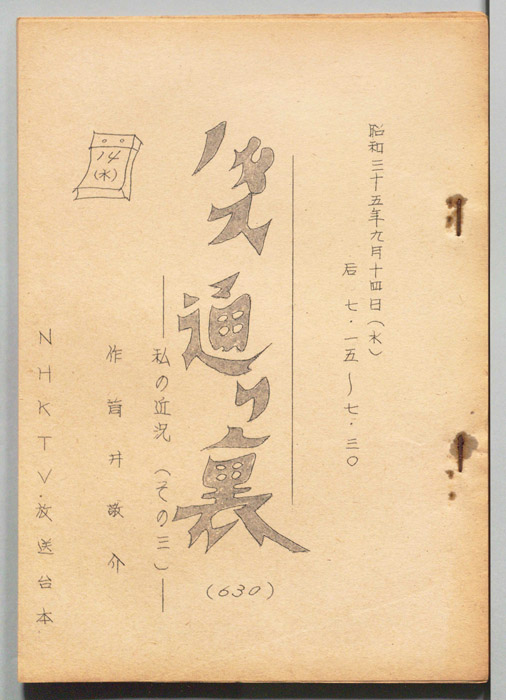 昭和三十五年九月十四日(水)
后 七・一五〜七・三〇
バス通り裏
(630)
―私の近況 (その三)―
作 筒井敬介
14
(水)
NHKTV・放送台本